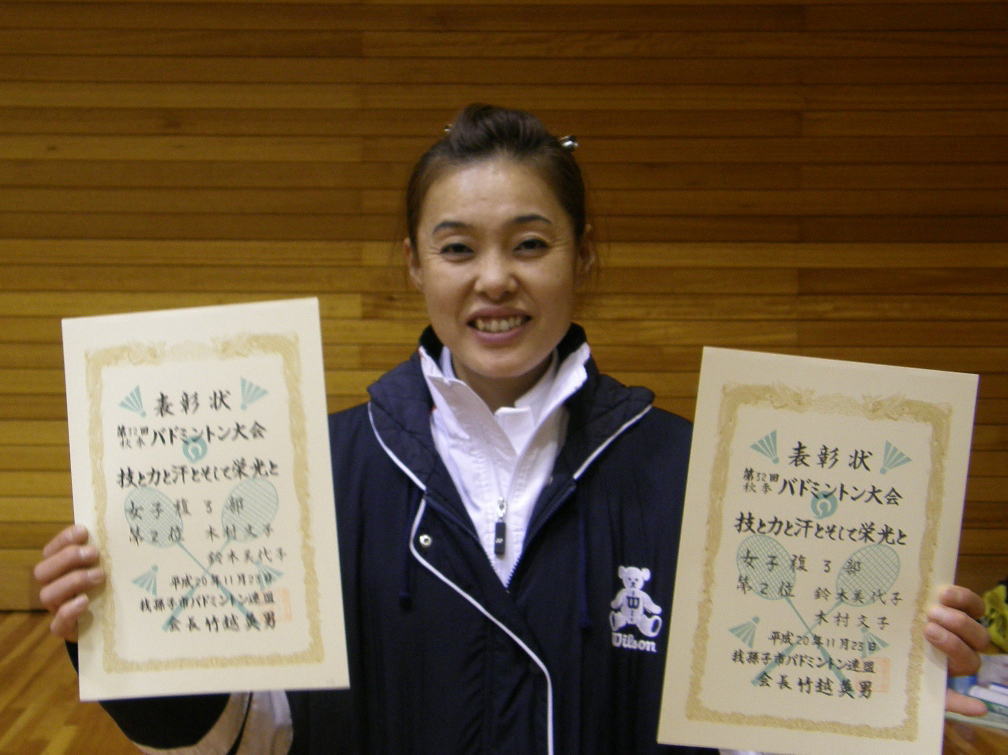 表彰状
第32回
秋季 バドミントン大会
技と力と汗とそして栄光と
女子複 3 部
第2位 木村文子
鈴木美代子
平成20年11月23日
我孫子市バドミントン連盟
会長 竹越英男
表彰状
第32回
秋季 バドミントン大会
技と力と汗とそして栄光と
女子複 3 部
第2位 鈴木美代子
木村文子
平成20年11月23日
我孫子市バドミントン連盟
会長 竹越英男
W
Wilson